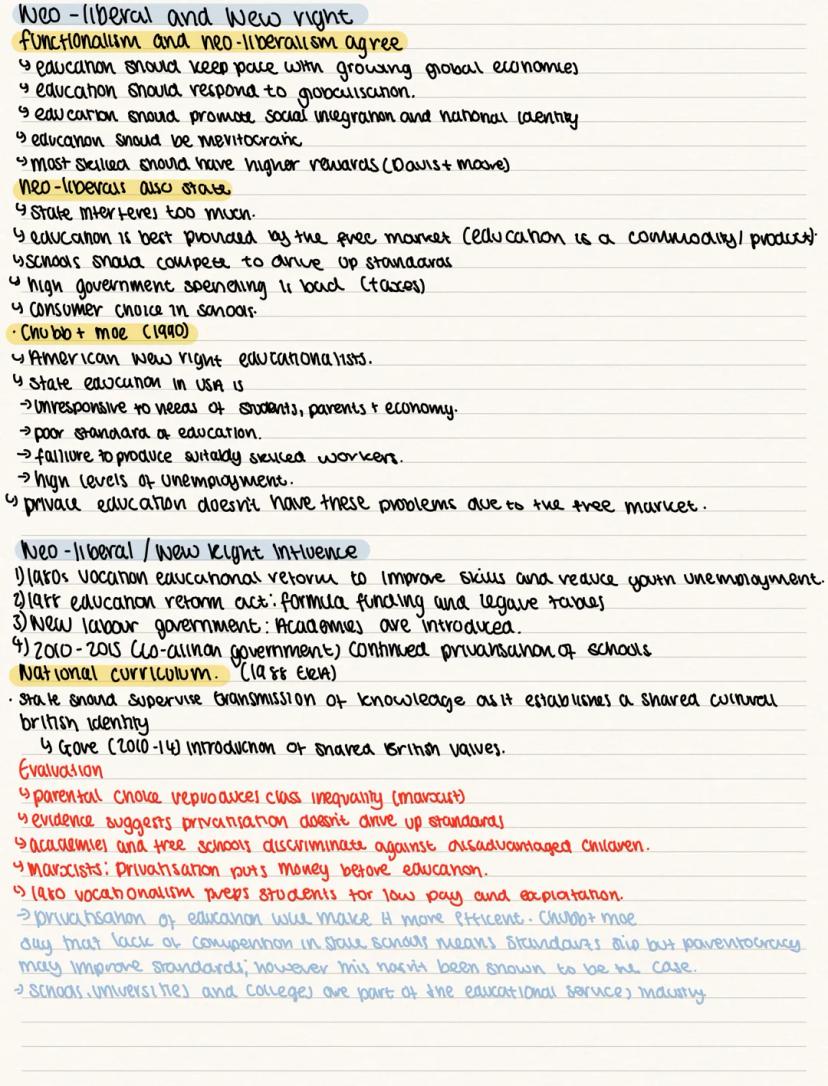 Neo-liberal and New right
functionalism and neo-liberalism agree
↳ education should keep pace with growing global economies
↳ education should respond to globalisation.
↳ education should promote social integration and national identity
↳ education should be meritocratic
↳ most skilled should have higher rewards (Davis + moore)
neo-liberals also state
↳ State interferes too much.
↳ education is best provided by the free market (education is a commodity/product).
↳ schools should compete to drive up standards
↳ high government spending is bad (taxes)
↳ consumer choice in schools.
· Chubb + moe (1990)
↳ American New right educationalists.
↳ state education in USA is
→ unresponsive to needs of students, parents + economy.
→ poor standard of education.
→ failiure to produce suitably skilled workers.
→ high levels of unemployment.
↳ private education doesn't have these problems due to the free market.
Neo-liberal / New Right Influence
1) 1980s vocation educational reform to improve skills and reduce youth unemployment.
2) 1988 education reform act: formula funding and league tables
3) New labour government: Academies are introduced.
4) 2010-2015 (co-alition government) continued privatisation of schools
National curriculum. (1988 ERA)
· state should supervise transmission of knowledge as it establishes a shared cultural
british identity
↳ Gove (2010-14) introduction of shared British values.
Evaluation
↳ parental choice reproduces class inequality (marxist)
↳ evidence suggests privatisation doesn't drive up standards
↳ academies and free schools discriminate against disadvantaged children.
↳ marxists: privatisation puts money before education.
↳ 1980 vocationalism preps students for low pay and exploitation.
→ privatisation of education will make it more efficent. Chubb + moe
say that lack of competition in state schools means standards slip but parentocracy
may improve standards; however this hasn't been shown to be the case.
→ schools, universities and colleges are part of the educational services industry